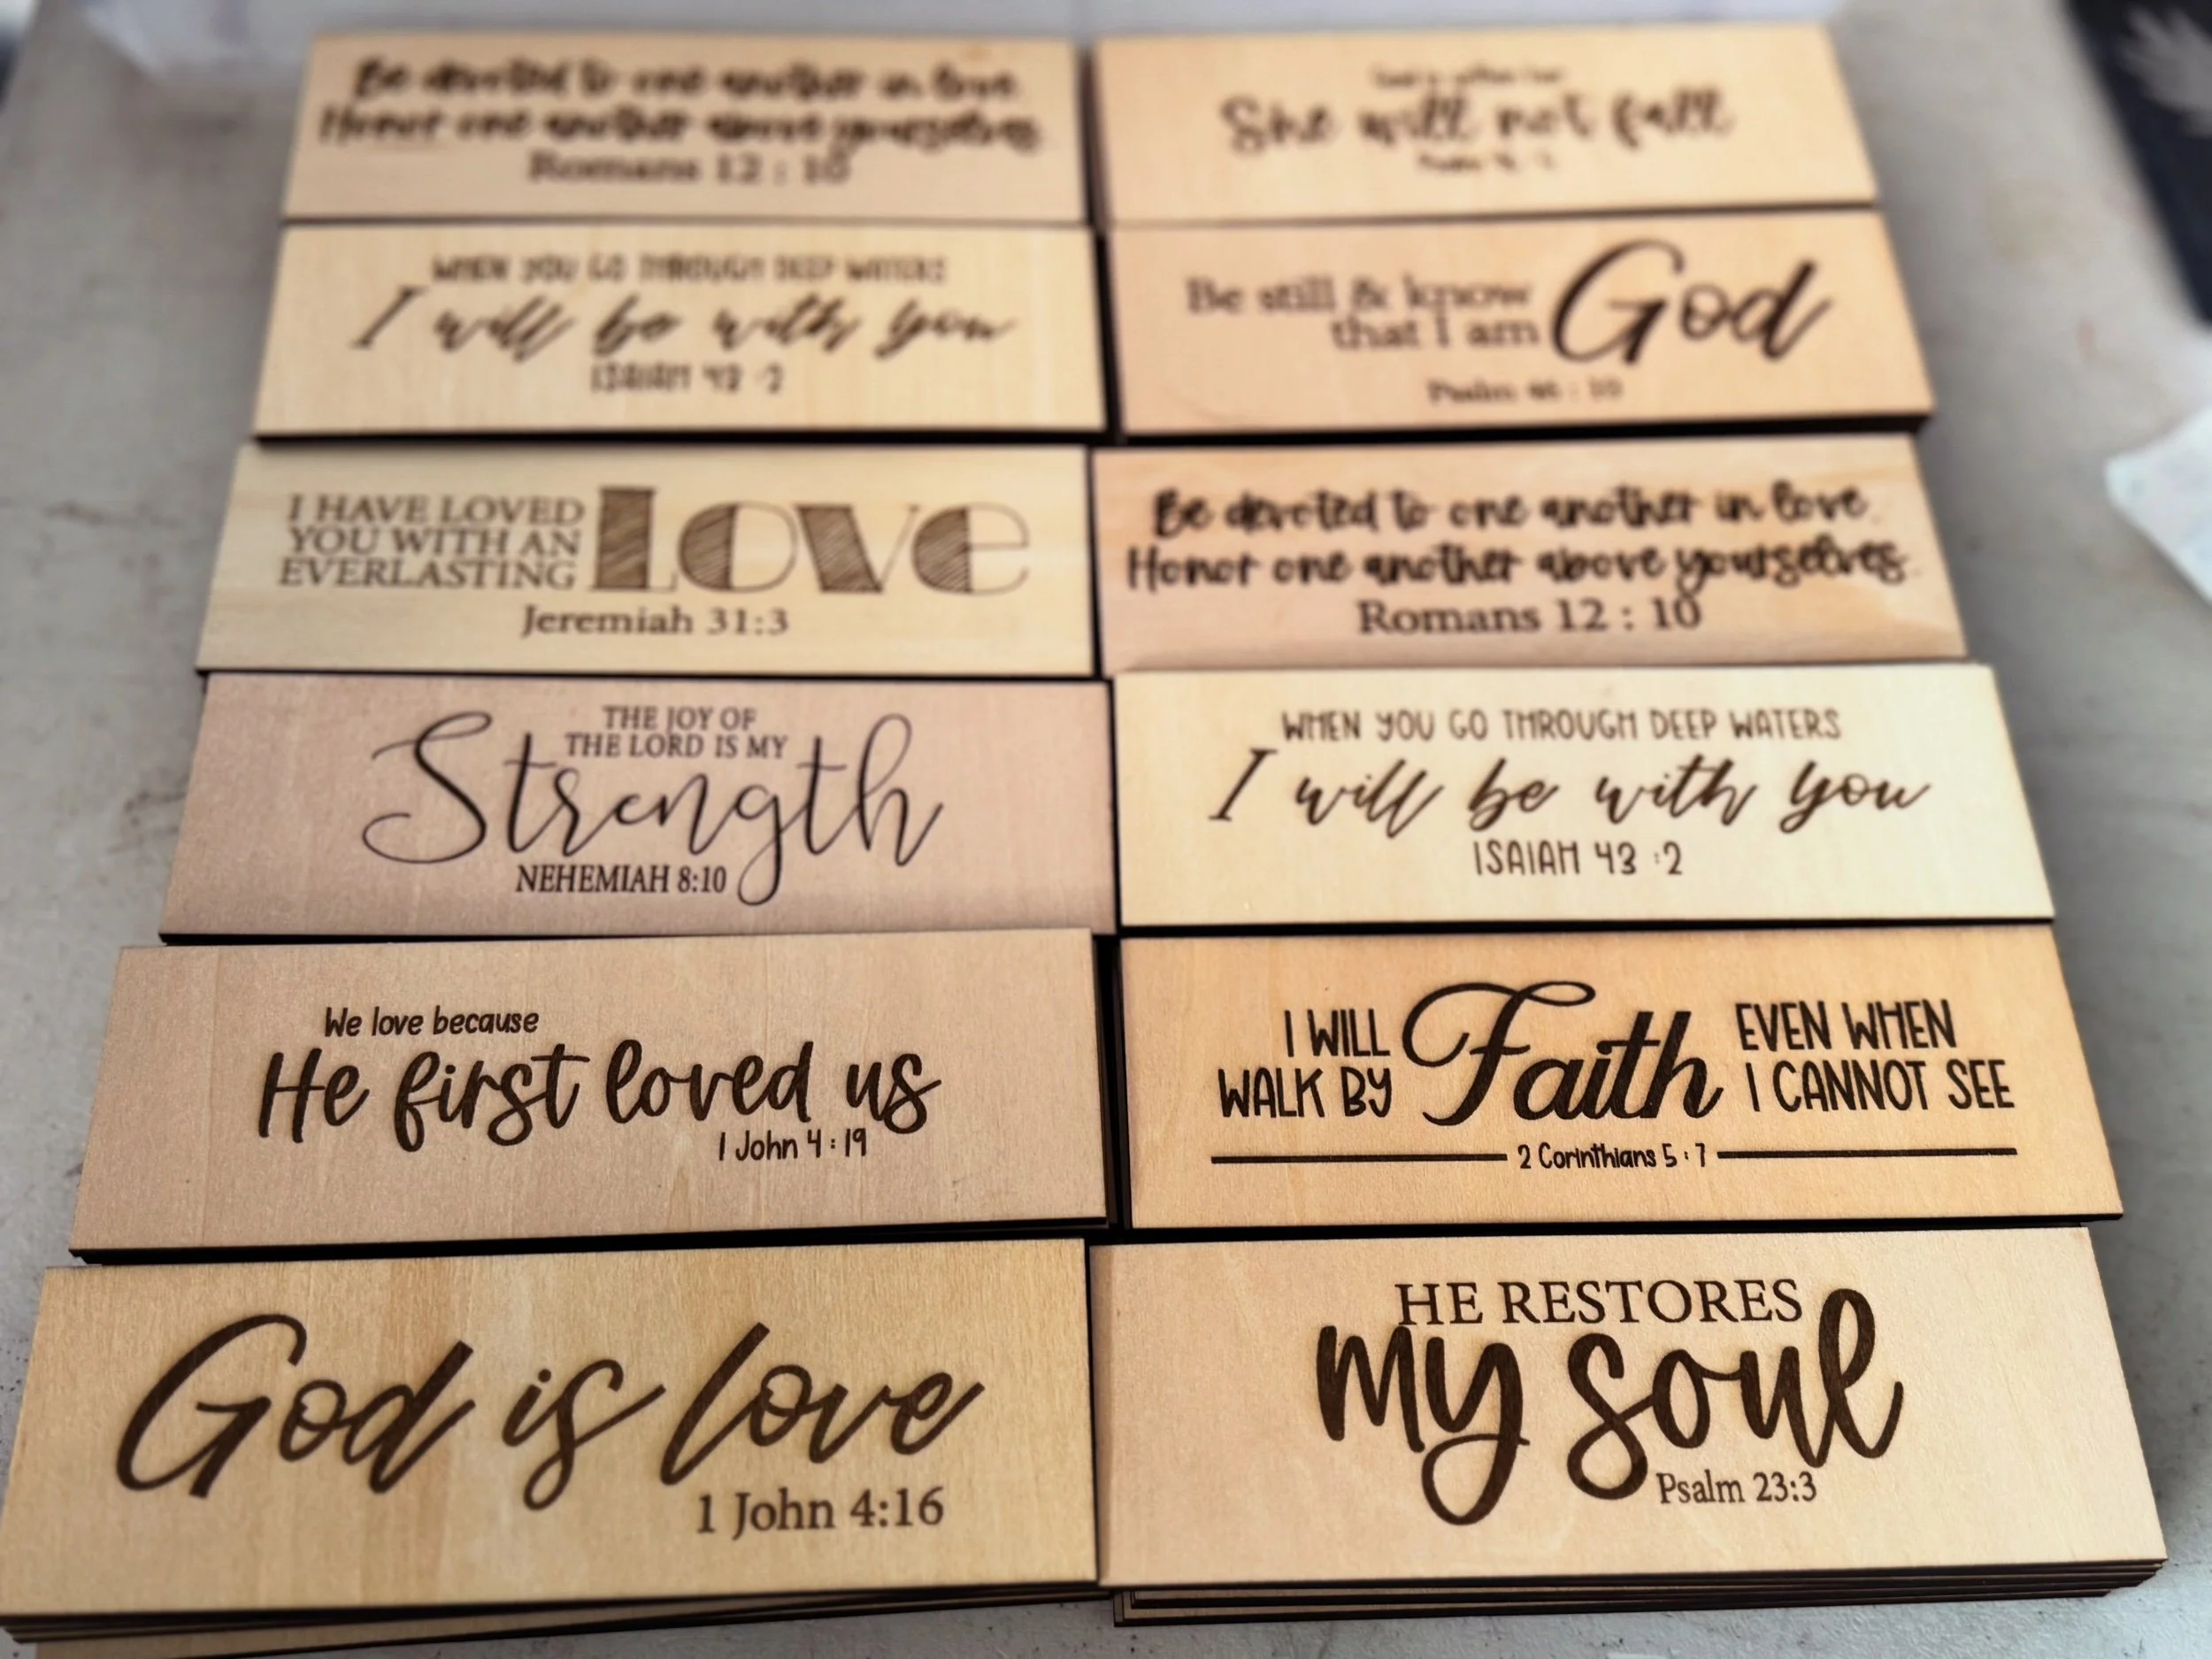 Be devoted to one another in love.
Honor one another above yourselves.
Romans 12 : 10
She will not fall
WHEN YOU GO THROUGH DEEP WATERS
I will be with you
ISAIAH 43 :2
Be still & know
that I am God
Psalm 46 : 10
I HAVE LOVED
YOU WITH AN
EVERLASTING Love
Jeremiah 31:3
Be devoted to one another in love.
Honor one another above yourselves.
Romans 12 : 10
THE JOY OF
THE LORD IS MY
Strength
NEHEMIAH 8:10
WHEN YOU GO THROUGH DEEP WATERS
I will be with you
ISAIAH 43 :2
We love because
He first loved us
1 John 4 : 19
I WILL
WALK BY
Faith
EVEN WHEN
I CANNOT SEE
2 Corinthians 5 : 7
God is love
1 John 4:16
HE RESTORES
my soul
Psalm 23:3